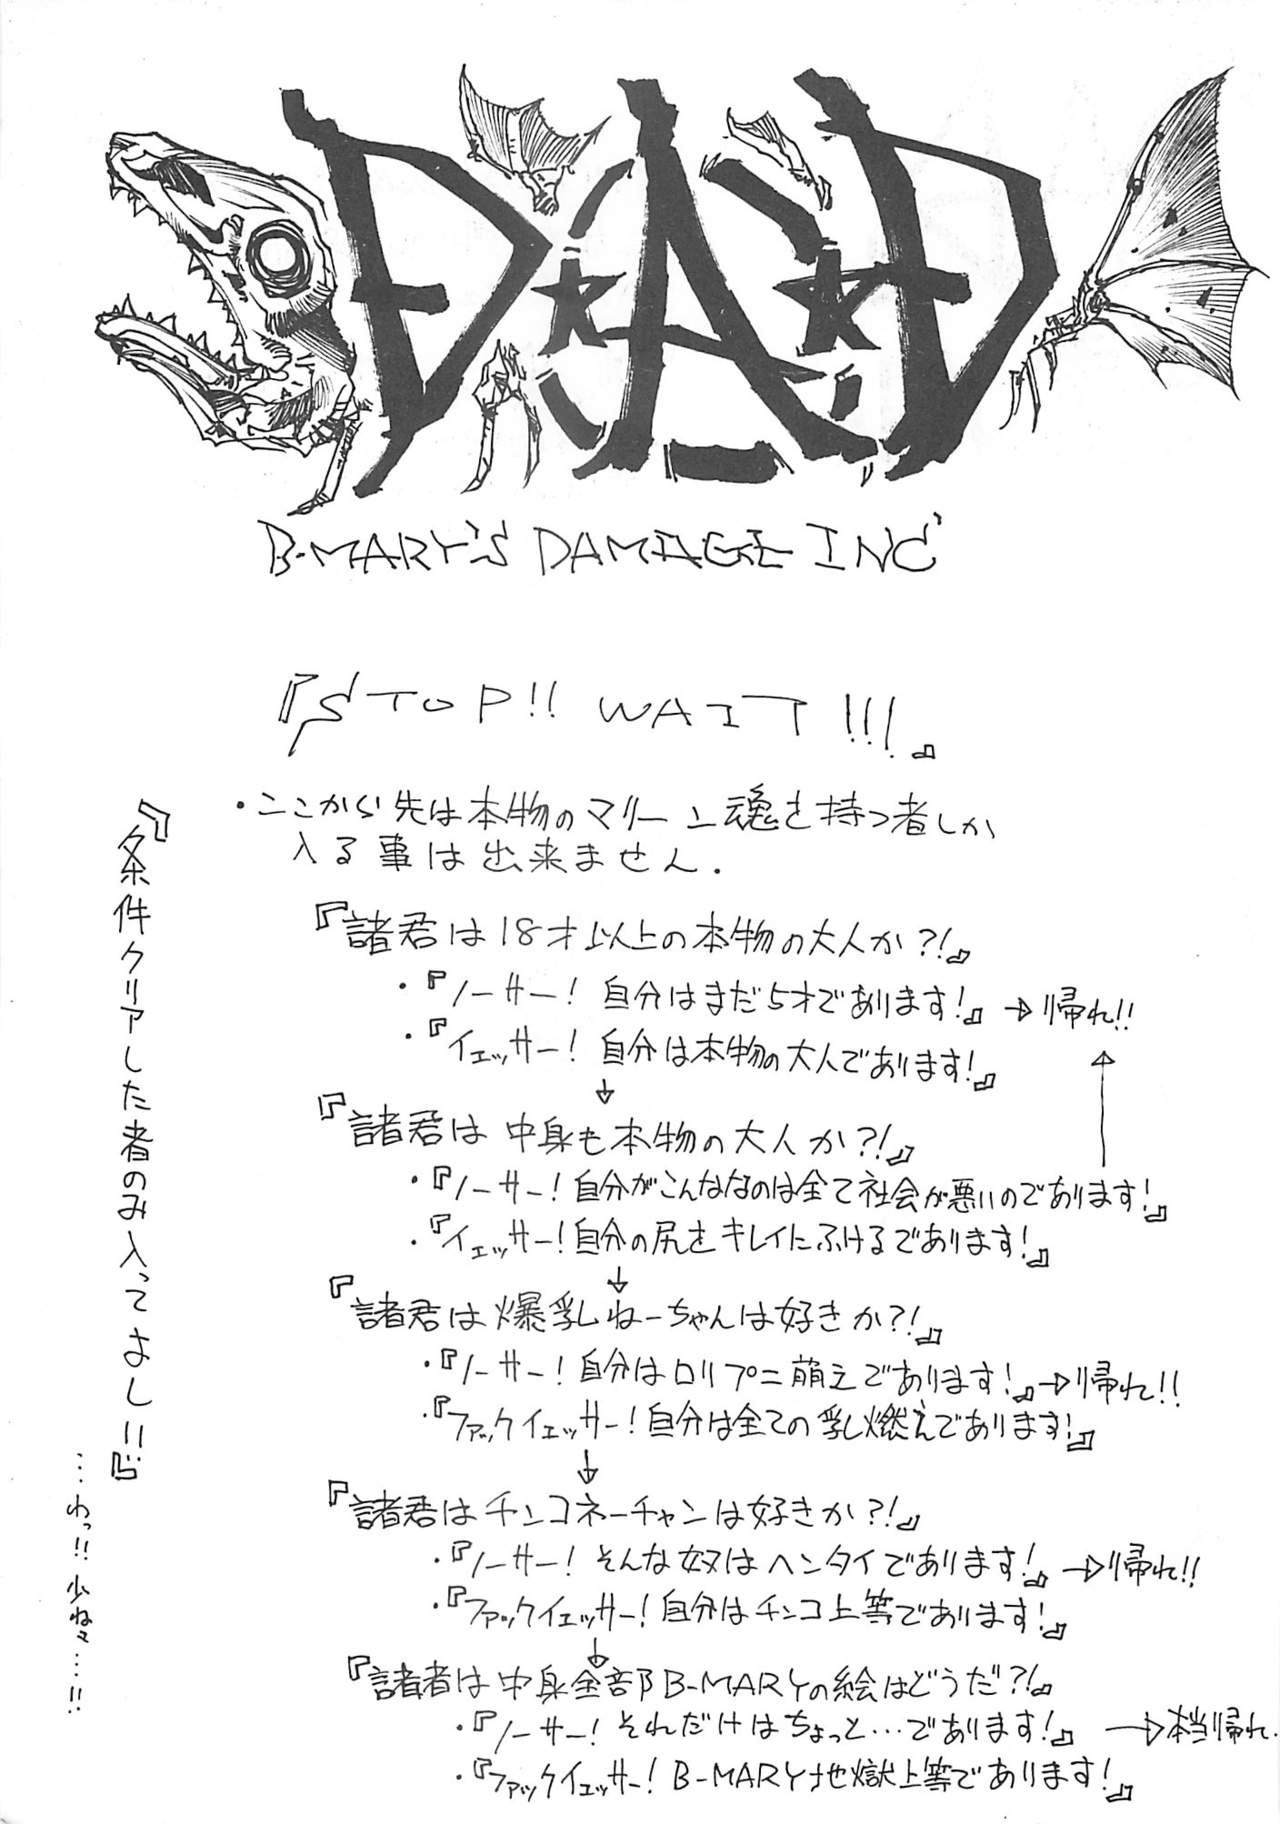 D★A★D
B-MARY'S DAMAGE INC
『STOP!! WAIT!!!』
・ここから先は本物のマリーン魂を持つ者しか
入る事は出来ません.
『諸君は18才以上の本物の大人か?!』
・『ノーサー! 自分はまだ5才であります!』→帰れ!!
・『イェッサー! 自分は本物の大人であります!』
↓
『諸君は中身も本物の大人か?!』
・『ノーサー! 自分がこんななのは全て社会が悪いのであります!』
・『イェッサー! 自分の尻をキレイにふけるであります!』
↓
『諸君は爆乳ねーちゃんは好きか?!』
・『ノーサー! 自分はロリプニ萌えであります!』→帰れ!!
・『ファックイェッサー! 自分は全ての乳燃えであります!』
↓
『諸君はチンコネーチャンは好きか?!』
・『ノーサー! そんな奴はヘンタイであります!』→帰れ!!
・『ファックイェッサー! 自分はチンコ上等であります!』
↓
『諸者は中身全部B-MARYの絵はどうだ?!』
・『ノーサー! それだけはちょっと…であります!』→本当帰れ.
・『ファックイェッサー! B-MARY地獄上等であります!』
『条件クリアした者のみ入ってよし!!』
…わっ!! 少ねぇ…!!